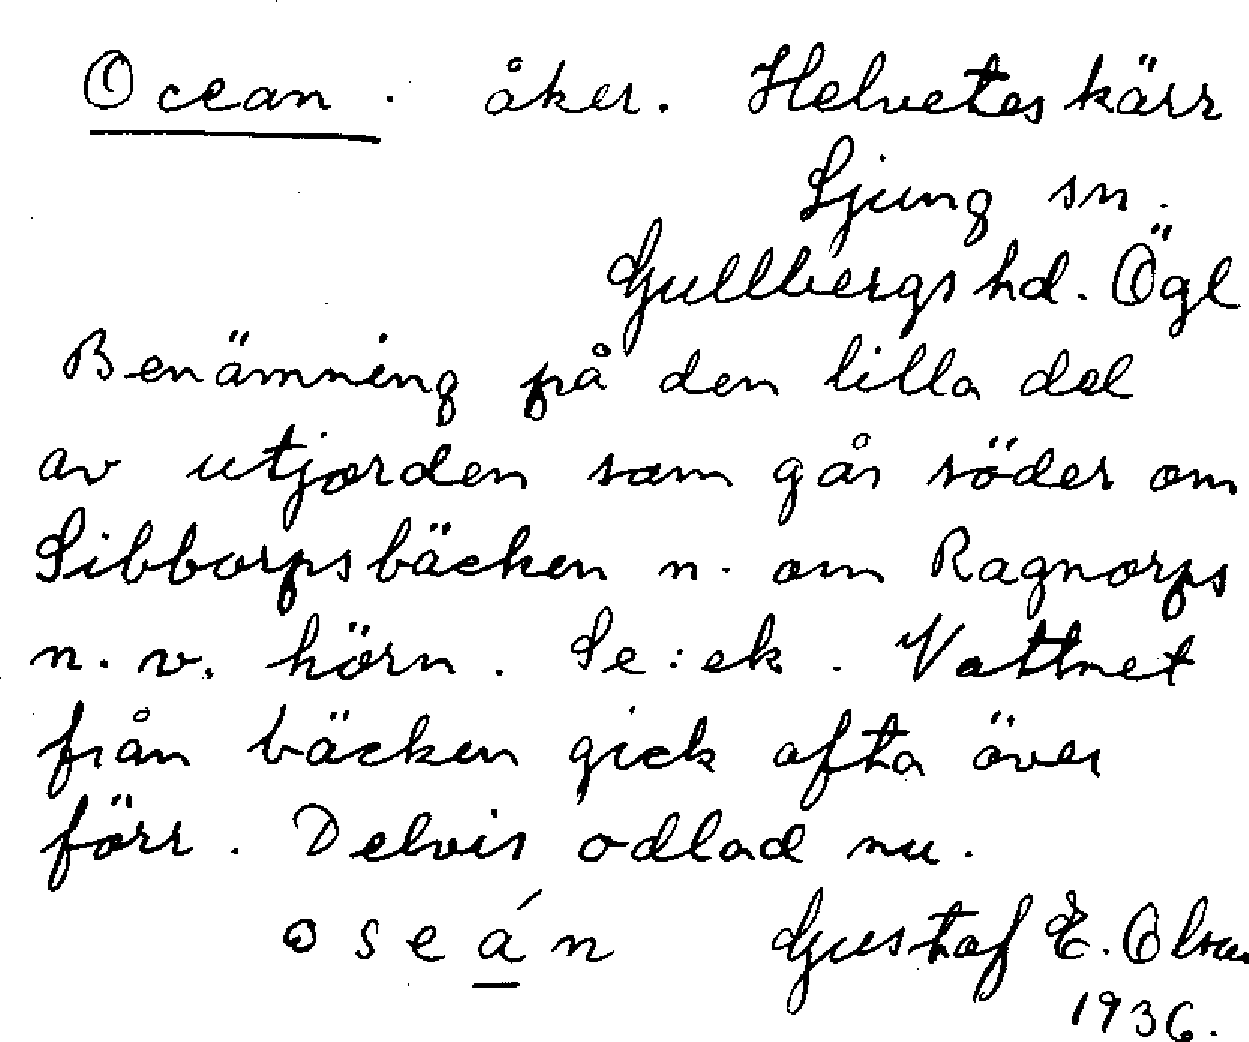 Ocean. åker. Helveteskärr
Ljung sn.
Gullbergs hd. Ögl
Benämning på den lilla del
av utjorden som går söder om
Sibborpsbäcken n. om Ragnorps
n.v. hörn. Se: ek. Vattnet
från bäcken gick ofta över
förr. Delvis odlad nu.
oseán Gustaf E. Olsson
1936.